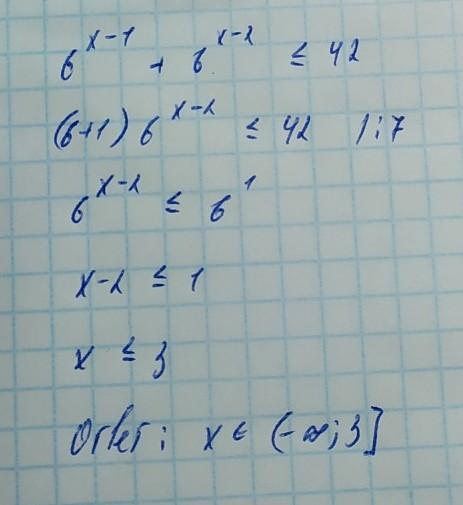 6^{x-1} + 6^{x-2} ≤ 42
(6+1) 6^{x-2} ≤ 42 /:7
6^{x-2} ≤ 6^1
x-2 ≤ 1
x ≤ 3
Ответ: x ∈ (-∞;3]